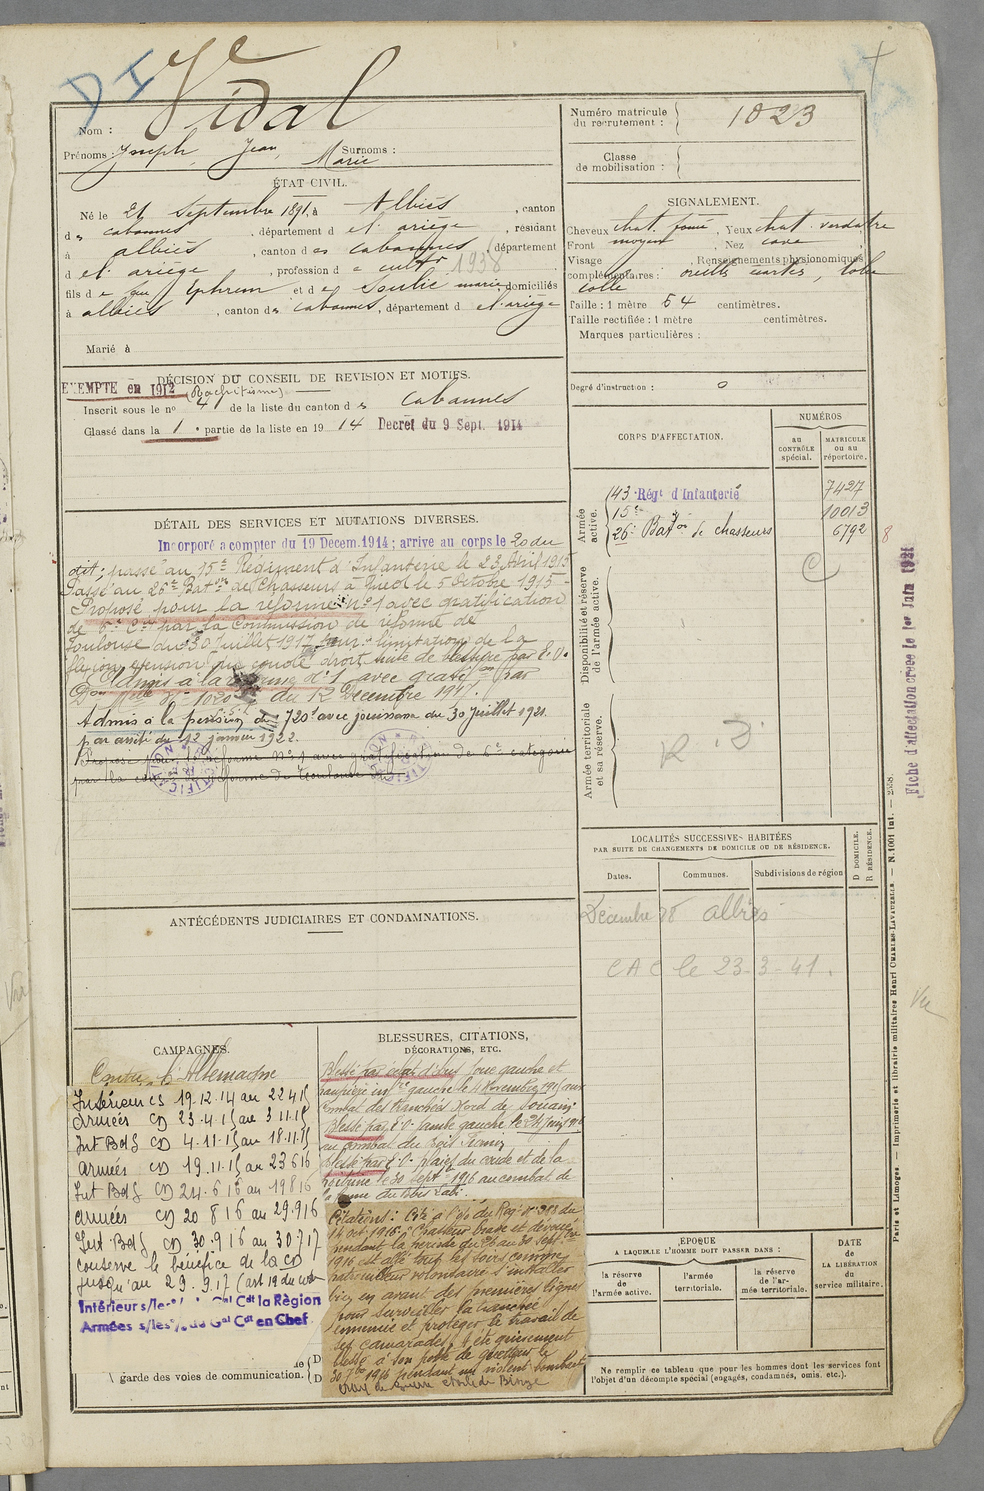 D I
Vidal
Nom :
Prénoms : Joseph, Jean, Marie Surnoms :
Numéro matricule du recrutement : 1023
Classe de mobilisation :
ÉTAT CIVIL.
Né le 21 Septembre 1891, à Albiès, canton
d es cabannes, département d e l'ariège, résidant
à albiès, canton d es cabannes, département
d e l'ariège, profession d e cultr 1938
fils d e feu Ephrem et d e Soulié marie, domiciliés
à albiès, canton d es cabannes, département d e l'ariège
Marié à
SIGNALEMENT.
Cheveux chat. foncé, Yeux chat. verdâtre
Front moyen, Nez cave
Visage , Renseignements physionomiques
complémentaires : oreille écartée, lobe
collé
Taille : 1 mètre 54 centimètres.
Taille rectifiée : 1 mètre centimètres.
Marques particulières :
Degré d'instruction : 0
DÉCISION DU CONSEIL DE REVISION ET MOTIFS.
EXEMPTE en 1912 (Rachitisme)
Inscrit sous le no 4 de la liste du canton d es Cabannes
Classé dans la 1e partie de la liste en 1914 Decret du 9 Sept. 1914
CORPS D'AFFECTATION.
NUMÉROS
au CONTRÔLE spécial.
MATRICULE ou au répertoire.
Armée active.
143e Régt d'Infanterie 7427
15e 10013
26e Baton de chasseurs 6792
8
Disponibilité et réserve de l'armée active.
Armée territoriale et sa réserve.
R. D.
Fiche d'affectation créée le 1er Juin 1921
DÉTAIL DES SERVICES ET MUTATIONS DIVERSES.
Incorporé à compter du 19 Décem. 1914 ; arrivé au corps le 20 du
dit ; passé au 15e Régiment d'Infanterie le 23 Avril 1915
Passé au 26e Baton de Chasseurs à Pied le 5 Octobre 1915 -
Proposé pour la réforme no 1 avec gratification
de 6e Cie par la Commission de réforme de
Toulouse du 30 Juillet 1917 pour : limitation de la
flexion extension du coude droit suite de blessure par E.O.
Admis à la réforme no 1 avec gratifon par
Don du 12 Décembre 1917.
Admis à la pension de 720f avec jouissance du 30 Juillet 1921
par arrêté du 12 janvier 1922.
Proposé pour la réforme No 1 avec gratification de 6e catégorie
par la commission de réforme de Toulouse
LOCALITÉS SUCCESSIVES HABITÉES
PAR SUITE DE CHANGEMENTS DE DOMICILE OU DE RÉSIDENCE.
D DOMICILE.
R RÉSIDENCE.
Dates. Communes. Subdivisions de région
Décembre 38 albiès
CAC le 23-3-41.
ANTÉCÉDENTS JUDICIAIRES ET CONDAMNATIONS.
CAMPAGNES.
Contre l'Allemagne
Intérieur CS 19.12.14 au 22 4 15
Armées CD 23-4-15 au 3 11.15
Int Bles CD 4-11-15 au 18.11.15
Armées CD 19.11.15 au 23 6 16
Int Bles CD 24.6 16 au 19 8 16
Armées CD 20 8 16 au 29.9 16
Int Bles CD 30.9 16 au 30 7 17
conserve le bénéfice de la CD
jusqu'au 29.9.17 (art 19 du
Intérieur s/les Gal Cdt la Région
Armées s/les Gal Cdt en Chef
garde des voies de communication.
BLESSURES, CITATIONS,
DÉCORATIONS, ETC.
Blessé par éclat d'obus joue gauche et
gauche le 4 Novembre 1915 aux
combat des tranchées Nord de Souain
Blessé par E.O. jambe gauche le 24 Juin 1916
au combat du
Blessé par E.O. plaies du coude et de la
poitrine le 30 septbre 1916 au combat de
la ferme du Bois Labé.
Citations : Cité à l'O. du Rég. No 383 du
14 oct. 1916 : "Chasseur brave et dévoué
pendant la période du 26 au 30 septbre
1916 est allé tous les soirs comme
patrouilleur volontaire s'installer
en avant des premières lignes
pour surveiller la tranchée
ennemie et protéger le travail de
ses camarades, a été grièvement
blessé à son poste de guetteur le
30 7bre 1916 pendant un violent bombart
Croix de Guerre étoile de Bronze
ÉPOQUE
À LAQUELLE L'HOMME DOIT PASSER DANS :
la réserve de l'armée active.
l'armée territoriale.
la réserve de l'armée territoriale.
DATE de LA LIBÉRATION du service militaire.
Ne remplir ce tableau que pour les hommes dont les services font
l'objet d'un décompte spécial (engagés, condamnés, omis, etc.).
Paris et Limoges. — Imprimerie et librairie militaires Henri CHARLES-LAVAUZELLE. — N. 1001 Int. — 2358.
Vu